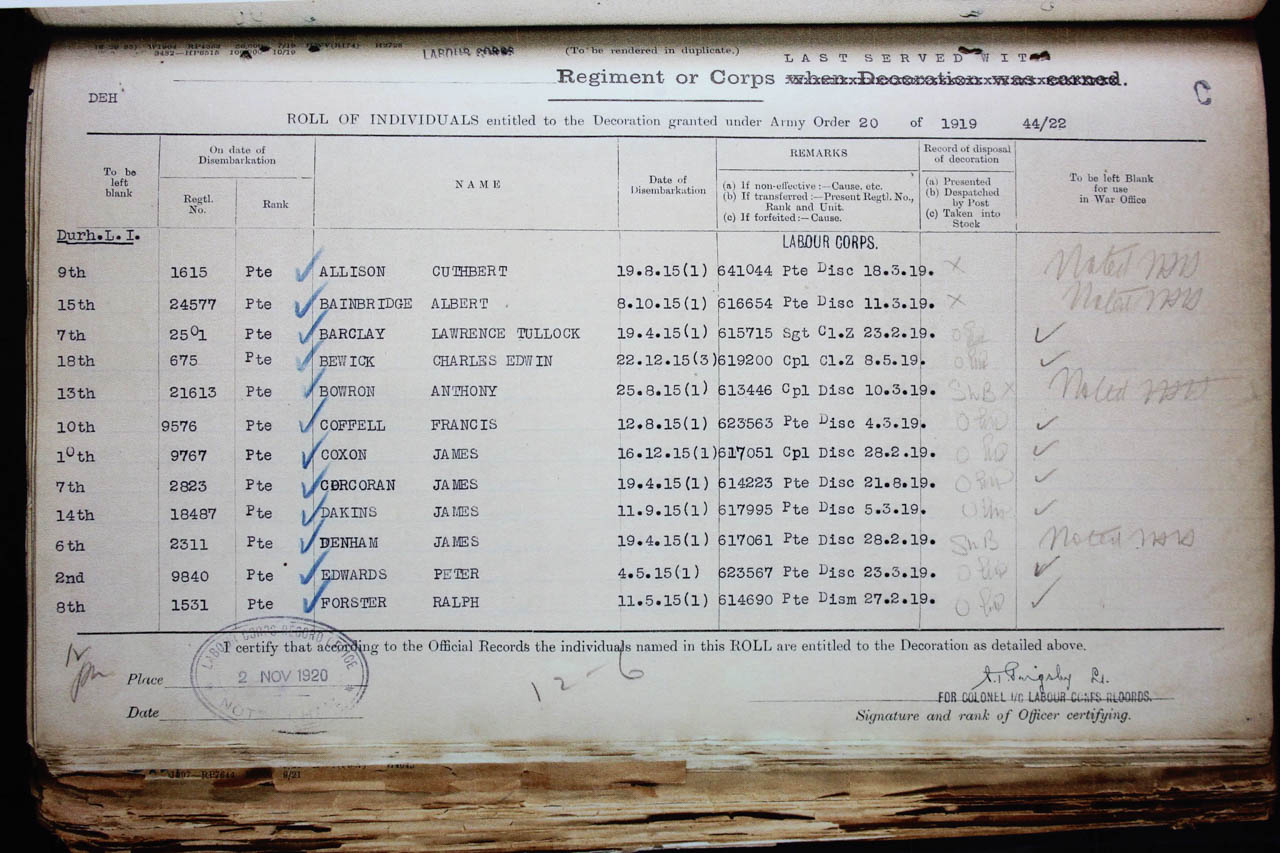 LABOUR CORPS
(To be rendered in duplicate.)
LAST SERVED WIT
Regiment or Corps when Decoration was earned.
C
DEH
ROLL OF INDIVIDUALS entitled to the Decoration granted under Army Order 20 of 1919 44/22
To be left blank
On date of Disembarkation
Regtl. No.
Rank
NAME
Date of Disembarkation
REMARKS
(a) If non-effective :—Cause, etc.
(b) If transferred :—Present Regtl. No., Rank and Unit.
(c) If forfeited :—Cause.
Record of disposal of decoration
(a) Presented
(b) Despatched by Post
(c) Taken into Stock
To be left Blank for use in War Office
Durh.L.I.
LABOUR CORPS.
9th 1615 Pte ALLISON CUTHBERT 19.8.15(1) 641044 Pte Disc 18.3.19. X Noted
15th 24577 Pte BAINBRIDGE ALBERT 8.10.15(1) 616654 Pte Disc 11.3.19. X Noted
7th 2501 Pte BARCLAY LAWRENCE TULLOCK 19.4.15(1) 615715 Sgt Cl.Z 23.2.19. ✓
18th 675 Pte BEWICK CHARLES EDWIN 22.12.15(3) 619200 Cpl Cl.Z 8.5.19. ✓
13th 21613 Pte BOWRON ANTHONY 25.8.15(1) 613446 Cpl Disc 10.3.19. SWB X Noted
10th 9576 Pte COFFELL FRANCIS 12.8.15(1) 623563 Pte Disc 4.3.19. ✓
10th 9767 Pte COXON JAMES 16.12.15(1) 617051 Cpl Disc 28.2.19. ✓
7th 2823 Pte CORCORAN JAMES 19.4.15(1) 614223 Pte Disc 21.8.19. ✓
14th 18487 Pte DAKINS JAMES 11.9.15(1) 617995 Pte Disc 5.3.19. ✓
6th 2311 Pte DENHAM JAMES 19.4.15(1) 617061 Pte Disc 28.2.19. SWB Noted
2nd 9840 Pte EDWARDS PETER 4.5.15(1) 623567 Pte Disc 23.3.19. ✓
8th 1531 Pte FORSTER RALPH 11.5.15(1) 614690 Pte Dism 27.2.19. ✓
I certify that according to the Official Records the individuals named in this ROLL are entitled to the Decoration as detailed above.
LABOUR CORPS RECORD OFFICE
Place
2 NOV 1920
12-6
FOR COLONEL I/C LABOUR CORPS RECORDS.
Date
Signature and rank of Officer certifying.